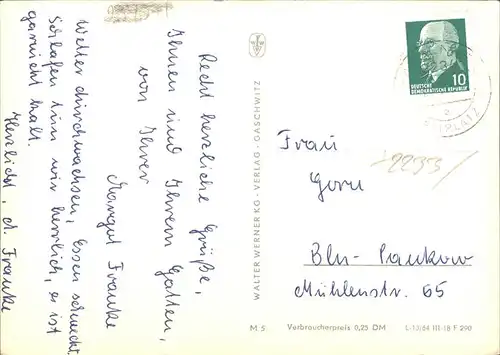 Recht herzliche Grüße,
Ihnen und Ihrem Gatten,
von Ihrer
Margot Franke
Wetter durchwachsen, Essen schmeckt
Schlafen tun wir herrlich, es ist
garnicht kalt.
Herzlichst, A. Franke
WALTER WERNER KG · VERLAG · GASCHWITZ
10
DEUTSCHE
DEMOKRATISCHE REPUBLIK
PLATZ
Frau
Gorn
Bln-Pankow
Mühlenstr. 65
M 5 Verbraucherpreis 0,25 DM L-13/64 III-18 F 290